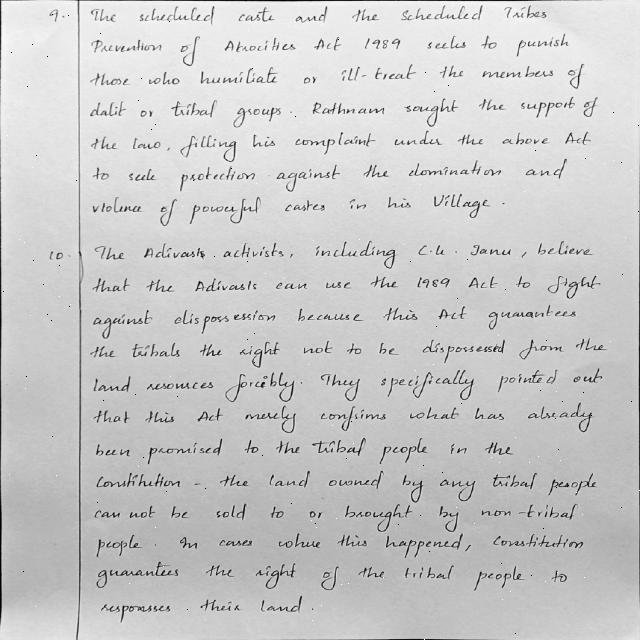 9. The scheduled caste and the Scheduled Tribes
Prevention of Atrocities Act 1989 seeks to punish
those who humiliate or ill-treat the members of
dalit or tribal groups. Rathnam sought the support of
the law, filling his complaint under the above Act
to seek protection against the domination and
violence of powerful castes in his Village.
10. The Adivasis activists, including C.K. Janu, believe
that the Adivasis can use the 1989 Act to fight
against dispossession because this Act guarantees
the tribals the right not to be dispossessed from the
land resources forcibly. They specifically pointed out
that this Act merely confirms what has already
been promised to the tribal people in the
Constitution - the land owned by any tribal people
can not be sold to or brought by non-tribal
people. In cases where this happened, Constitution
guarantees the right of the tribal people to
responsses their land.